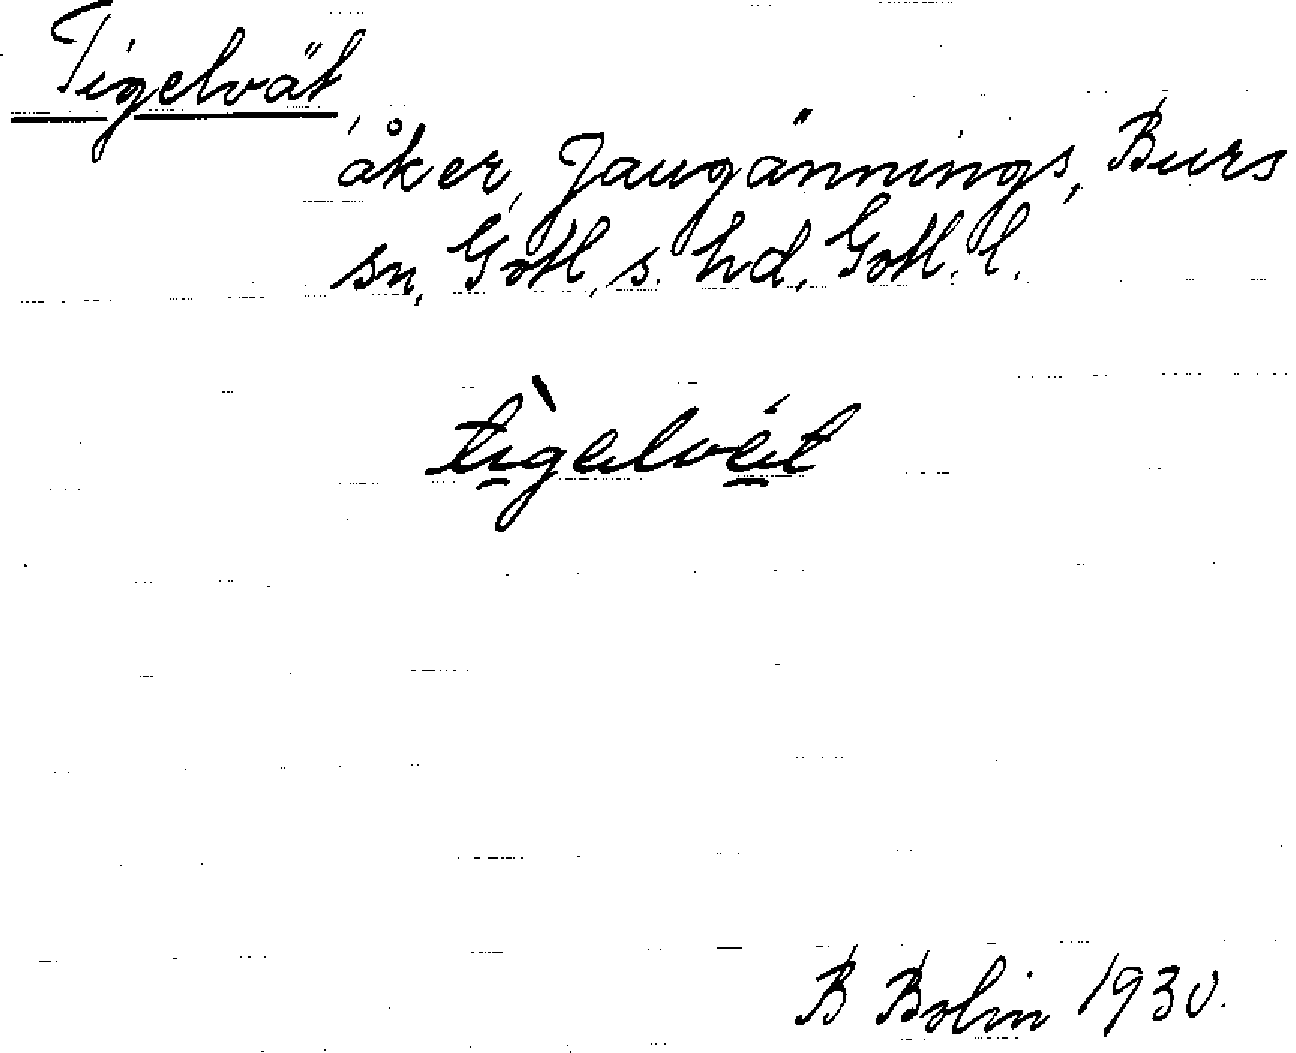 Tigelvät,
åker, Jaugännings, Burs
sn, Gotl. s. hd, Gotl. l.
tìgelvét
B Bolin 1930.